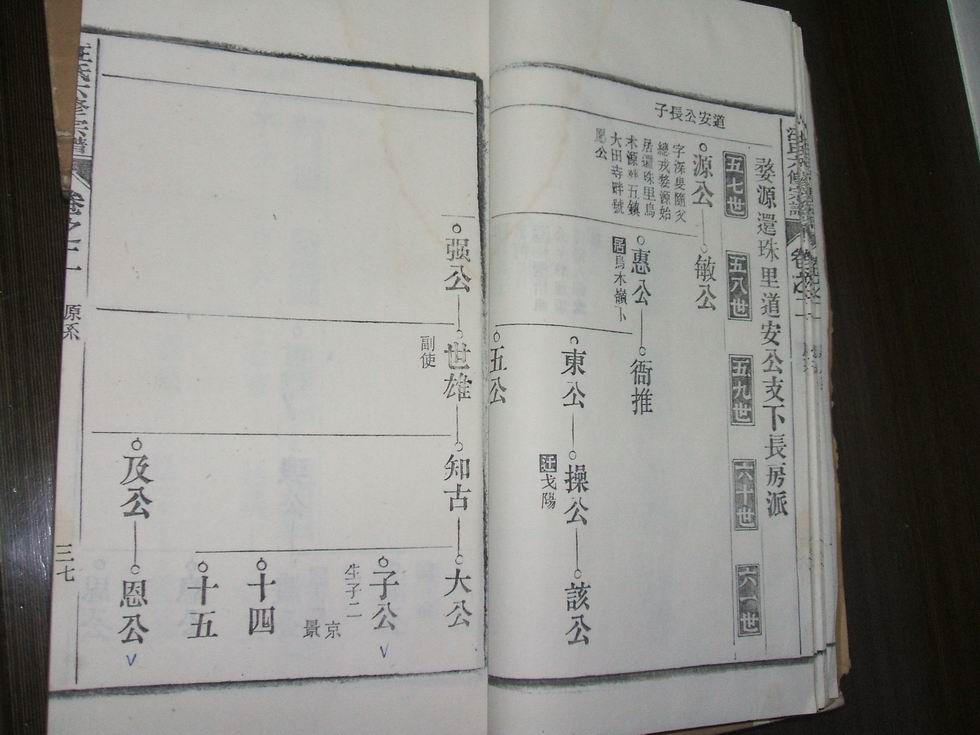 婺源還珠里道安公支下長房派
五七世
五八世
五九世
六十世
六一世
道安公長子
源公
字深叟隨父
總戎婺源始
居還珠里烏
木源葬五鎮
大田寺畔號
敏公
惠公
居烏木嶺卜
衙推
東公
操公
迁戈陽
該公
五公
强公
世雄
副使
知古
大公
子公
生子二
京
景
十四
十五
及公
恩公
汪氏六修宗譜
卷之二
原系
三七